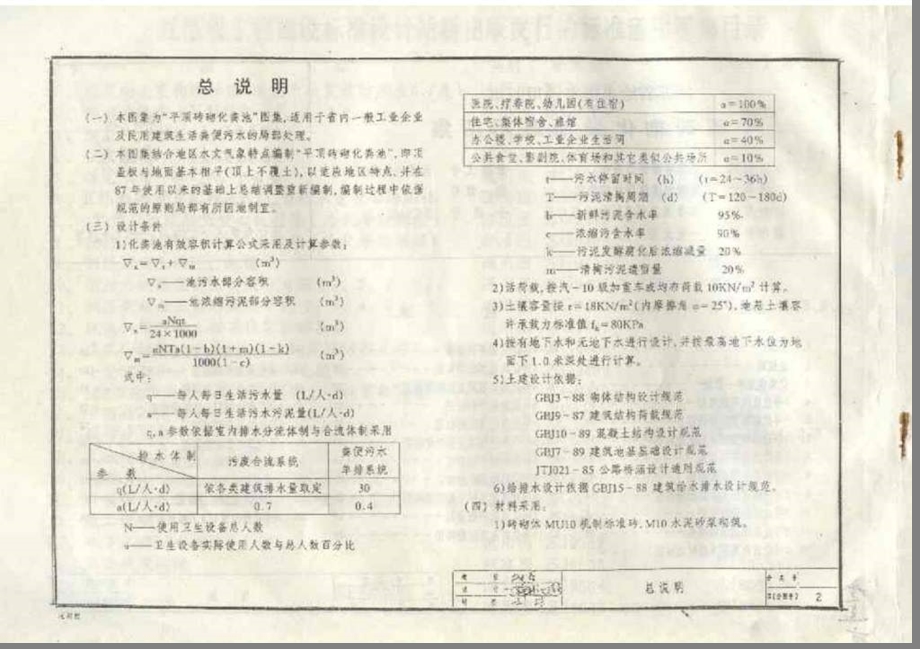 总说明
(一) 本图集为“平顶砖砌化粪池”图集,适用于省内一般工业企业
及民用建筑生活粪便污水的局部处理。
(二) 本图集结合地区水文气象特点编制“平顶砖砌化粪池”,即顶
盖板与地面基本相平(顶上不覆土),以适应地区特点,并在
87年使用以来的基础上总结调整重新编制,编制过程中依据
规范的原则局部有所因地制宜。
(三) 设计条件
1)化粪池有效容积计算公式采用及计算参数:
▽ₓ=▽ᵥ+▽ₘ (m³)
——池污水部分容积 (m³)
▽ₘ——池浓缩污泥部分容积 (m³)
▽ₙ= aNqt / 24×1000 (m³)
▽ₘ= aNTa(1-b)(1+m)(1-k) / 1000(1-c) (m³)
式中:
q——每人每日生活污水量 (L/人·d)
a——每人每日生活污水污泥量(L/人·d)
q,a 参数依据室内排水分流体制与合流体制采用
排水体制
参数
污废合流系统
粪便污水
单排系统
q(L/人·d) 依各类建筑排水量取定 30
a(L/人·d) 0.7 0.4
N——使用卫生设备总人数
——卫生设备实际使用人数与总人数百分比
医院、疗养院、幼儿园(有住宿) α=100%
住宅、集体宿舍、旅馆 α=70%
办公楼、学校、工业企业生活间 α=40%
公共食堂、影剧院、体育场和其它类似公共场所 α=10%
t——污水停留时间 (h) (t=24-36h)
T——污泥清掏周期 (d) (T=120-180d)
b——新鲜污泥含水率 95%
c——浓缩污含水率 90%
k——污泥发酵腐化后浓缩减量 20%
m——清掏污泥遗留量 20%
2)活荷载,按汽-10级加重车或均布荷载10KN/m²计算。
3)土壤容重按 r=18KN/m²(内摩擦角 φ=25°),地基土壤容
许承载力标准值 fₖ=80KPa
4)按有地下水和无地下水进行设计,并按最高地下水位为地
面下1.0米深处进行计算。
5)土建设计依据:
GBJ3-88 砌体结构设计规范
GBJ9-87 建筑结构荷载规范
GBJ10-89 混凝土结构设计规范
GBJ7-89 建筑地基基础设计规范
JTJ021-85 公路桥涵设计通用规范
6)给排水设计依据 GBJ15-88 建筑给水排水设计规范。
(四) 材料采用:
1)砖砌体 MU10 机制标准砖,M10 水泥砂浆砌筑。
总说明
2